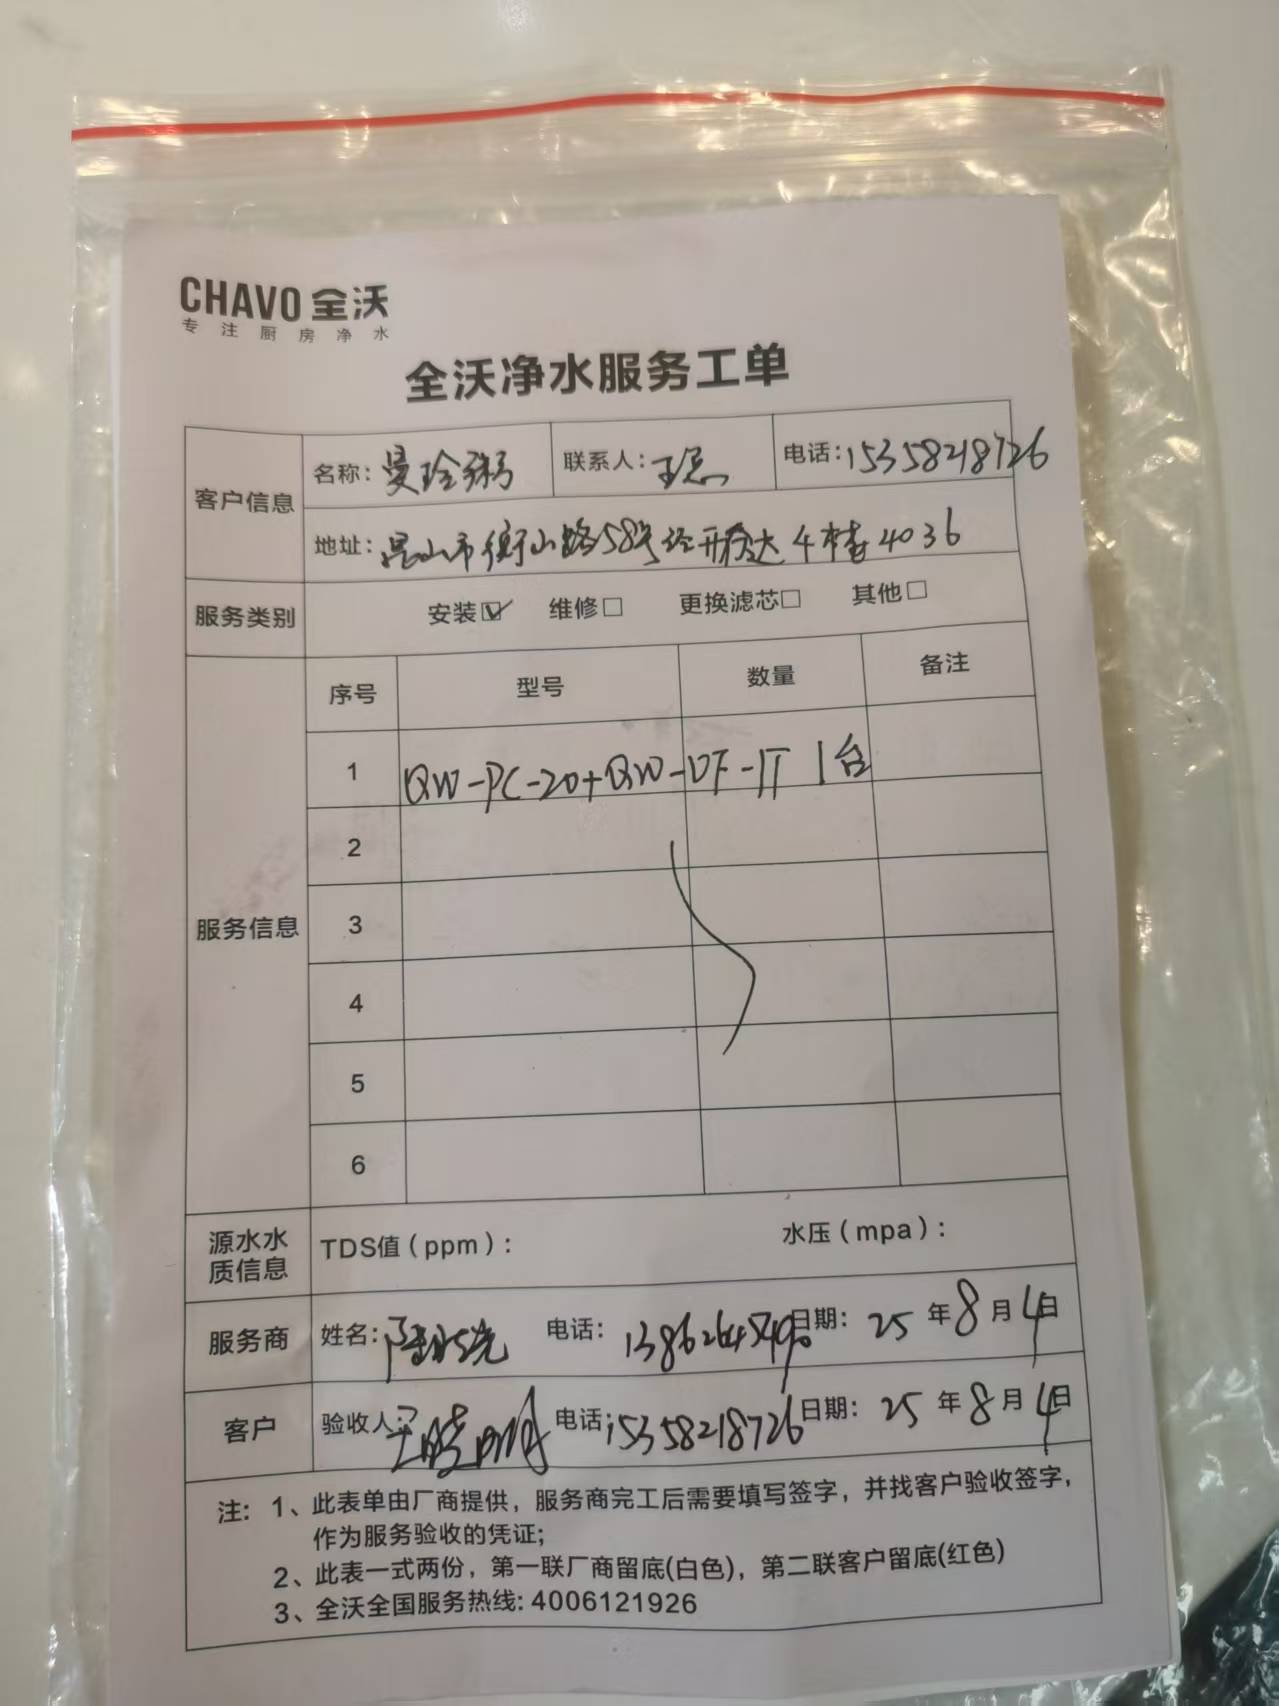 CHAVO 全沃
专注厨房净水
全沃净水服务工单
客户信息
名称：曼玲粥 联系人：王总 电话：15358218726
地址：昆山市衡山路58号经开万达4栋4036
服务类别 安装☑ 维修□ 更换滤芯□ 其他□
服务信息
序号 型号 数量 备注
1 QW-PC-20+QW-UF-1T 1台
2
3
4
5
6
源水水质信息 TDS值（ppm）： 水压（mpa）：
服务商 姓名： 电话： 日期：25年8月4日
客户 验收人： 电话：15358218726 日期：25年8月4日
注：1、此表单由厂商提供，服务商完工后需要填写签字，并找客户验收签字，
作为服务验收的凭证；
2、此表一式两份，第一联厂商留底(白色)，第二联客户留底(红色)
3、全沃全国服务热线: 4006121926